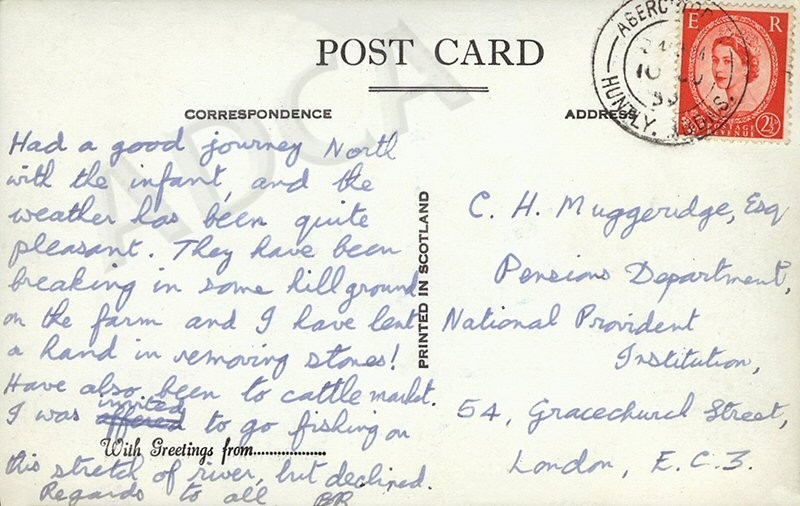 POST CARD
CORRESPONDENCE
ADDRESS
Had a good journey North
with the infant, and the
weather has been quite
pleasant. They have been
breaking in some hill ground
on the farm and I have lent
a hand in removing stones!
Have also been to cattle market.
invited
I was offered to go fishing on
With Greetings from..................
this stretch of river, but declined.
Regards to all BR
PRINTED IN SCOTLAND
C. H. Muggeridge, Esq
Pensions Department,
National Provident
Institution,
54, Gracechurch Street,
London, E.C.3.
E R
POSTAGE REVENUE
2½D
HUNTLY.
ADCA